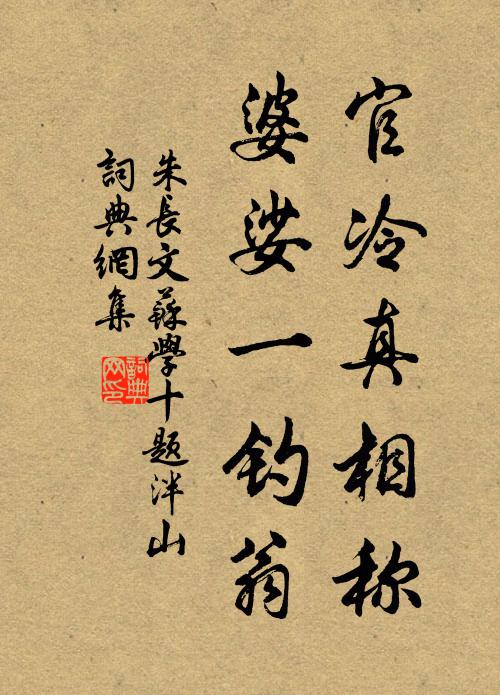 官冷真相称
婆娑一钓翁
朱長文蘇學十題泮山
詞典網集
詞典网印